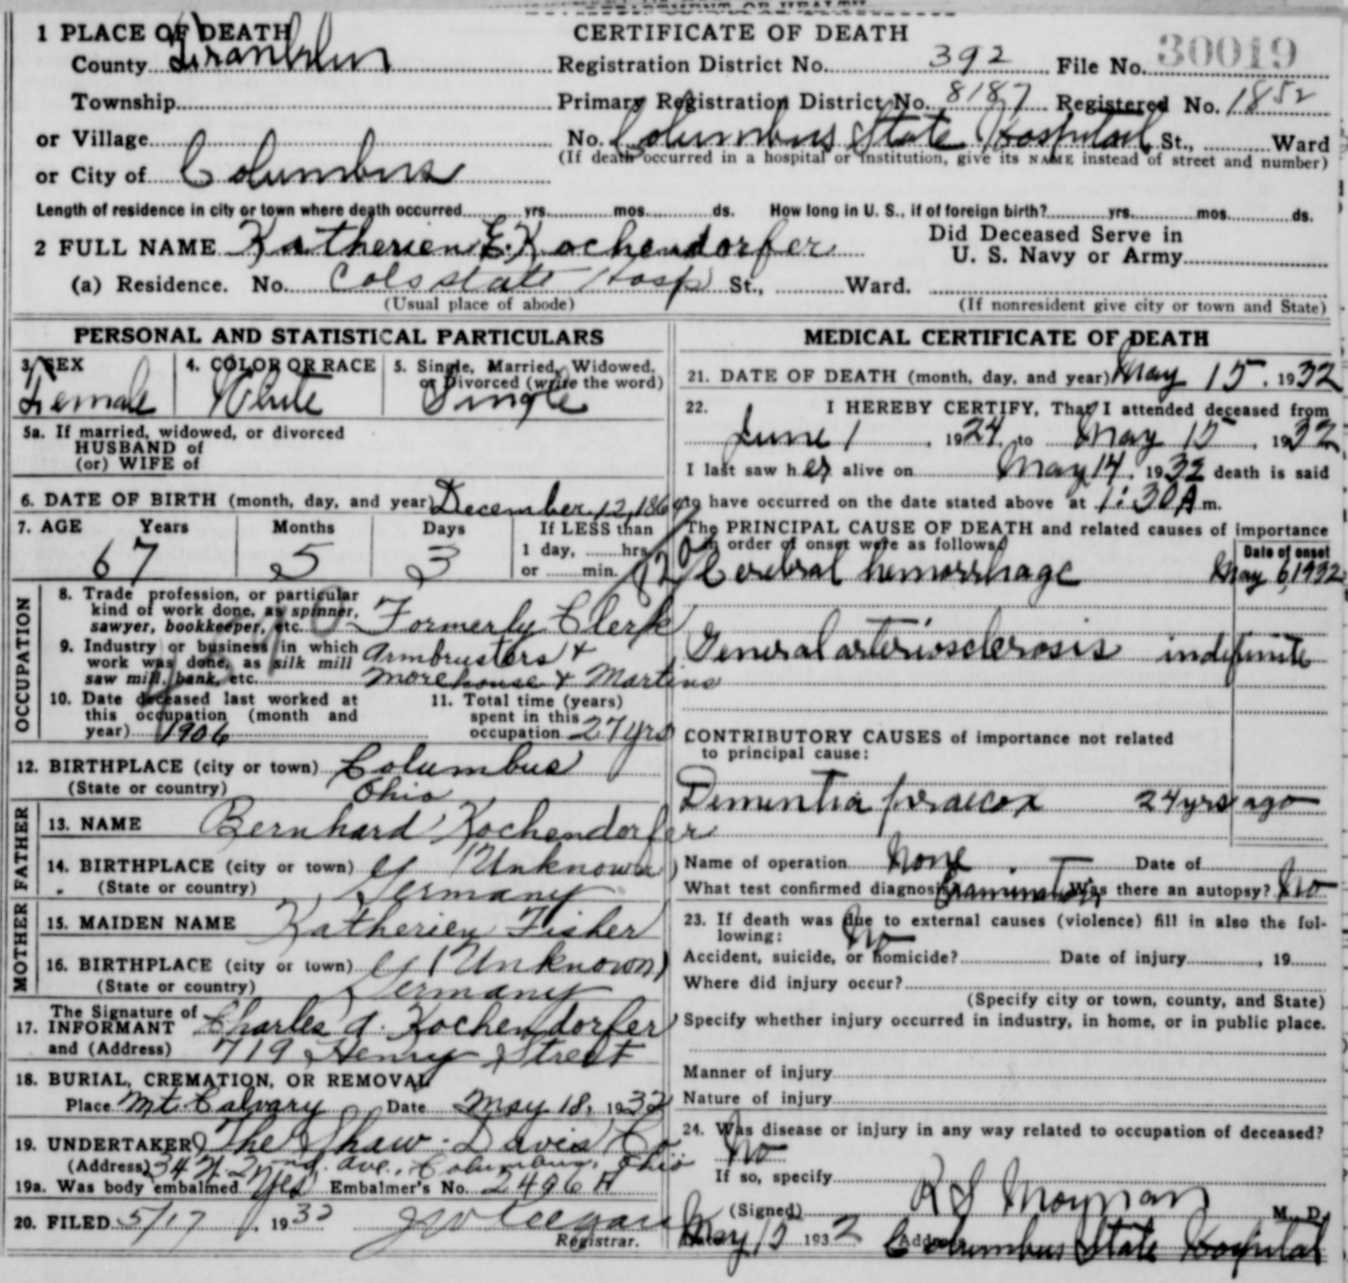 DEPARTMENT OF HEALTH
1 PLACE OF DEATH
CERTIFICATE OF DEATH
County Franklin
Registration District No. 392 File No. 30019
Township
Primary Registration District No. 8187 Registered No. 1852
or Village
No. Columbus State Hospital St., Ward
(If death occurred in a hospital or institution, give its NAME instead of street and number)
or City of Columbus
Length of residence in city or town where death occurred yrs. mos. ds. How long in U. S., if of foreign birth? yrs. mos. ds.
2 FULL NAME Katherien E. Kochendorfer
Did Deceased Serve in
U. S. Navy or Army
(a) Residence. No. Cols state Hosp St., Ward.
(Usual place of abode) (If nonresident give city or town and State)
PERSONAL AND STATISTICAL PARTICULARS
3. SEX 4. COLOR OR RACE 5. Single, Married, Widowed,
or Divorced (write the word)
Female White Single
5a. If married, widowed, or divorced
HUSBAND of
(or) WIFE of
6. DATE OF BIRTH (month, day, and year) December 12, 1864
7. AGE Years Months Days If LESS than
1 day, hrs.
or min.
67 5 3
OCCUPATION
8. Trade profession, or particular
kind of work done, as spinner,
sawyer, bookkeeper, etc. Formerly Clerk
9. Industry or business in which
work was done, as silk mill
saw mill, bank, etc.
Armbrusters &
Morehouse & Martins
10. Date deceased last worked at
this occupation (month and
year) 1906
11. Total time (years)
spent in this
occupation 27 yrs
12. BIRTHPLACE (city or town) Columbus
(State or country) Ohio
FATHER
13. NAME Bernhard Kochendorfer
14. BIRTHPLACE (city or town) (Unknown)
(State or country) Germany
MOTHER
15. MAIDEN NAME Katherien Fisher
16. BIRTHPLACE (city or town) (Unknown)
(State or country) Germany
The Signature of
17. INFORMANT Charles A. Kochendorfer
and (Address) 719 Henry Street
18. BURIAL, CREMATION, OR REMOVAL
Place Mt. Calvary Date May 18, 1932
19. UNDERTAKER The Shaw-Davis Co
(Address) 34 W. 2nd Ave., Columbus, Ohio
19a. Was body embalmed Yes Embalmer's No. 2496 A
20. FILED 5/17, 1932
Registrar.
MEDICAL CERTIFICATE OF DEATH
21. DATE OF DEATH (month, day, and year) May 15, 1932
22. I HEREBY CERTIFY, That I attended deceased from
June 1, 1924, to May 15, 1932
I last saw her alive on May 14, 1932 death is said
to have occurred on the date stated above at 1:30 A m.
The PRINCIPAL CAUSE OF DEATH and related causes of importance
in order of onset were as follows:
Date of onset
Cerebral hemorrhage May 6, 1932
General arteriosclerosis indefinite
CONTRIBUTORY CAUSES of importance not related
to principal cause:
Dementia praecox 24 yrs ago
Name of operation None Date of
What test confirmed diagnosis Examination Was there an autopsy? No
23. If death was due to external causes (violence) fill in also the fol-
lowing: No
Accident, suicide, or homicide? Date of injury , 19
Where did injury occur?
(Specify city or town, county, and State)
Specify whether injury occurred in industry, in home, or in public place.
Manner of injury
Nature of injury
24. Was disease or injury in any way related to occupation of deceased?
No
If so, specify
(Signed) M. D.
May 15 1932 Address Columbus State Hospital